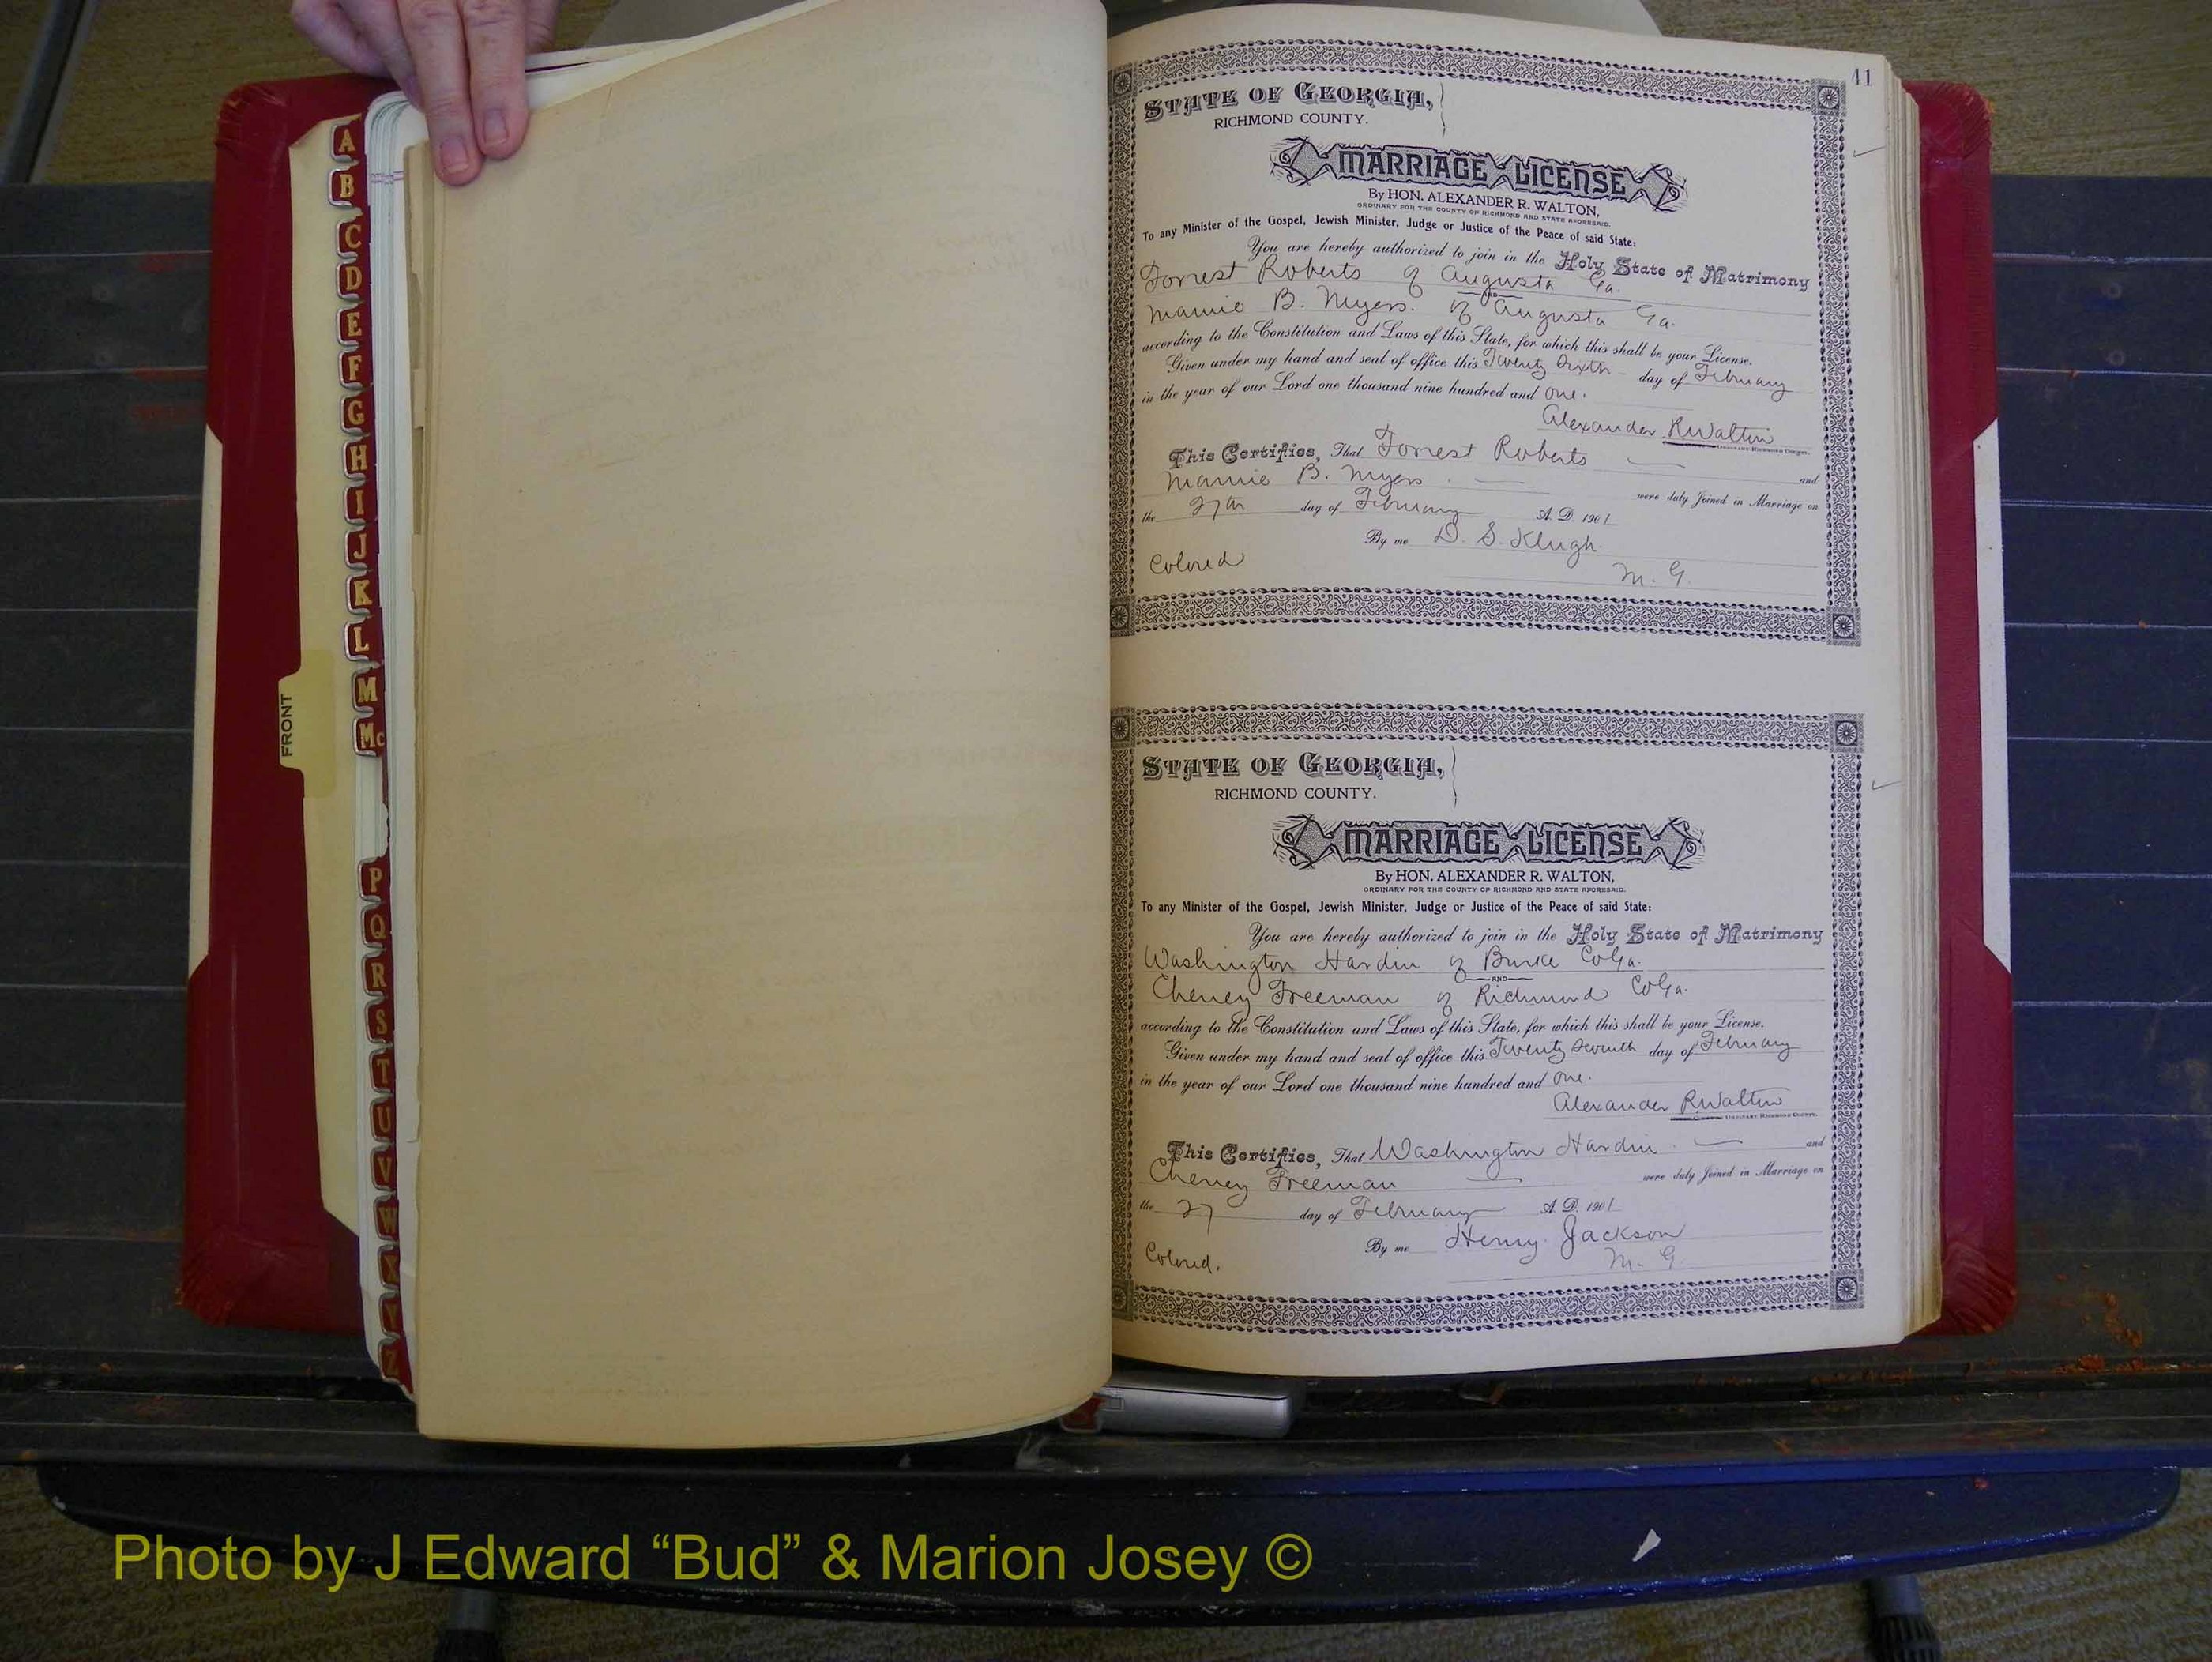 A
B
C
D
E
F
G
H
I
J
K
L
M
Mc
P
Q
R
S
T
U
V
W
X
Y
Z
FRONT
41
STATE OF GEORGIA,
RICHMOND COUNTY.
MARRIAGE LICENSE
By HON. ALEXANDER R. WALTON,
ORDINARY FOR THE COUNTY OF RICHMOND AND STATE AFORESAID.
To any Minister of the Gospel, Jewish Minister, Judge or Justice of the Peace of said State:
You are hereby authorized to join in the Holy State of Matrimony
Forrest Roberts of Augusta Ga.
AND
Mamie B. Myers. of Augusta Ga.
according to the Constitution and Laws of this State, for which this shall be your License.
Given under my hand and seal of office this Twenty Sixth day of February
in the year of our Lord one thousand nine hundred and One.
Alexander R Walton
ORDINARY RICHMOND COUNTY.
This Certifies, That Forrest Roberts
and
Mamie B. Myers
were duly Joined in Marriage on
the 27th day of February A. D. 1901
By me D. S. Klugh.
Colored
M. G.
STATE OF GEORGIA,
RICHMOND COUNTY.
MARRIAGE LICENSE
By HON. ALEXANDER R. WALTON,
ORDINARY FOR THE COUNTY OF RICHMOND AND STATE AFORESAID.
To any Minister of the Gospel, Jewish Minister, Judge or Justice of the Peace of said State:
You are hereby authorized to join in the Holy State of Matrimony
Washington Hardin of Burke Co Ga.
AND
Cheney Freeman of Richmond Co Ga.
according to the Constitution and Laws of this State, for which this shall be your License.
Given under my hand and seal of office this Twenty Seventh day of February
in the year of our Lord one thousand nine hundred and One.
Alexander R Walton
ORDINARY RICHMOND COUNTY.
This Certifies, That Washington Hardin and
Cheney Freeman were duly Joined in Marriage on
the 27 day of February A. D. 1901
By me Henry Jackson
Colored. M. G.
Photo by J Edward “Bud” & Marion Josey ©